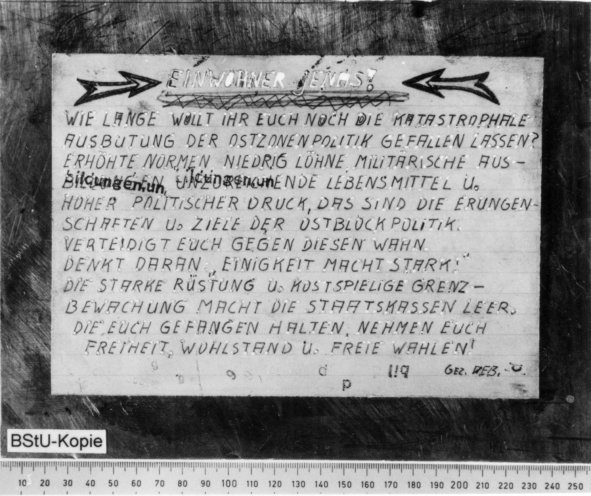 EINWOHNER JENAS!
WIE LANGE WOLLT IHR EUCH NOCH DIE KATASTROPHALE
AUSBUTUNG DER OSTZONENPOLITIK GEFALLEN LASSEN?
ERHÖHTE NORMEN NIEDRIG LÖHNE MILITÄRISCHE AUS-
BILDUNGEN UNZUREICHENDE LEBENSMITTEL U.
bildungen,un
ldungen,un
HOHER POLITISCHER DRUCK, DAS SIND DIE ERUNGEN-
SCHAFTEN U. ZIELE DER OSTBLOCKPOLITIK.
VERTEIDIGT EUCH GEGEN DIESEN WAHN.
DENKT DARAN „EINIGKEIT MACHT STARK!"
DIE STARKE RÜSTUNG U. KOSTSPIELIGE GRENZ-
BEWACHUNG MACHT DIE STAATSKASSEN LEER.
DIE EUCH GEFANGEN HALTEN, NEHMEN EUCH
FREIHEIT, WOHLSTAND U. FREIE WAHLEN!
GEZ.
BStU-Kopie
10 20 30 40 50 60 70 80 90 100 110 120 130 140 150 160 170 180 190 200 210 220 230 240 250